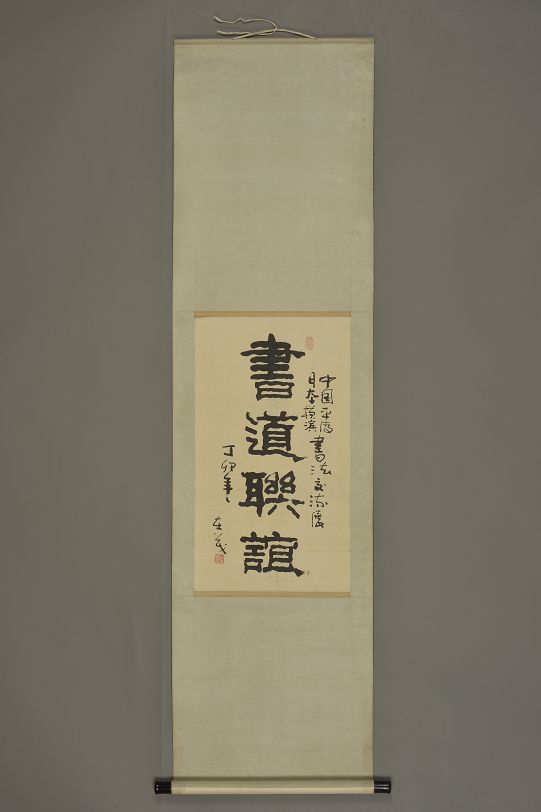 中国平度
日本横滨
書法交流展
書道聯誼
丁卯年